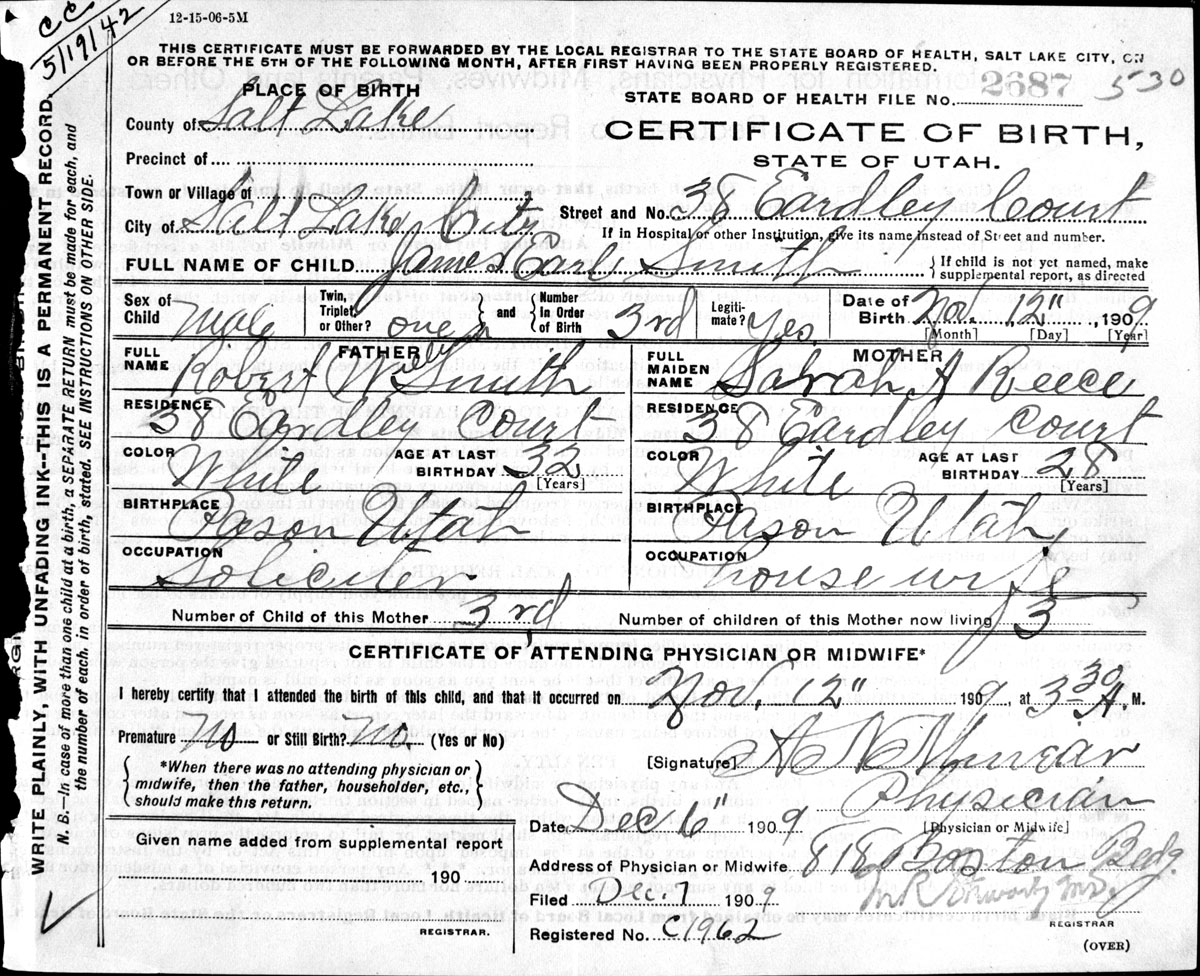 CC
5/19/42
12-15-06-5M
THIS CERTIFICATE MUST BE FORWARDED BY THE LOCAL REGISTRAR TO THE STATE BOARD OF HEALTH, SALT LAKE CITY, ON
OR BEFORE THE 5TH OF THE FOLLOWING MONTH, AFTER FIRST HAVING BEEN PROPERLY REGISTERED.
PLACE OF BIRTH
STATE BOARD OF HEALTH FILE No. 2687 530
County of Salt Lake
CERTIFICATE OF BIRTH,
STATE OF UTAH.
Precinct of
Town or Village of
City of Salt Lake City
Street and No. 38 Eardley Court
If in Hospital or other Institution, give its name instead of Street and number.
FULL NAME OF CHILD James Earl Smith
If child is not yet named, make
supplemental report, as directed
Sex of Child Male
Twin, Triplet, or Other? one
and
Number in Order of Birth 3rd
Legitimate? Yes
Date of Birth Nov. 12" , 1909
[Month] [Day] [Year]
FATHER
FULL NAME Robert Wm Smith
MOTHER
FULL MAIDEN NAME Sarah A Reece
RESIDENCE 38 Eardley Court
RESIDENCE 38 Eardley Court
COLOR White AGE AT LAST BIRTHDAY 32 [Years]
COLOR White AGE AT LAST BIRTHDAY 28 [Years]
BIRTHPLACE Pason Utah
BIRTHPLACE Pason Utah,
OCCUPATION Soliciter
OCCUPATION housewife
Number of Child of this Mother 3rd
Number of children of this Mother now living 3
CERTIFICATE OF ATTENDING PHYSICIAN OR MIDWIFE*
I hereby certify that I attended the birth of this child, and that it occurred on Nov. 12" 1909, at 3 30 A. M.
Premature No or Still Birth? No (Yes or No)
[Signature]
*When there was no attending physician or
midwife, then the father, householder, etc.,
should make this return.
Physician
[Physician or Midwife]
Date Dec 6" 1909
Given name added from supplemental report
190
REGISTRAR.
Address of Physician or Midwife 818 Boston Bedg
Filed Dec. 7 1909
REGISTRAR
Registered No. C1962
(OVER)
WRITE PLAINLY, WITH UNFADING INK--THIS IS A PERMANENT RECORD.
N. B.--In case of more than one child at a birth, a SEPARATE RETURN must be made for each, and
the number of each, in order of birth, stated. SEE INSTRUCTIONS ON OTHER SIDE.